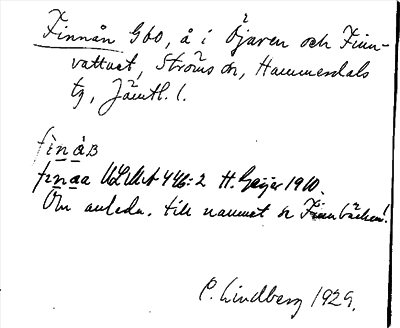 Finnån Gbo, å i Öjaren och Finn-
vattnet, Ströms sn, Hammerdals
tg, Jämtl. l.
fìnåB
fìnåa ULMA 446:2 H. Geijer 1910.
Om anledn. till namnet se Finnbäcken!
C. Lindberg 1929.